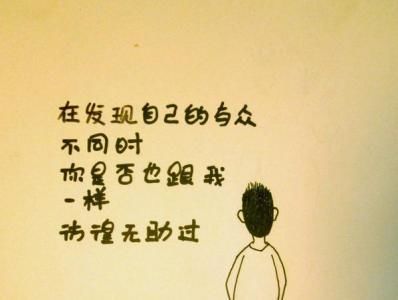 在发现自己的与众
不同时
你是否也跟我
一样
彷徨无助过